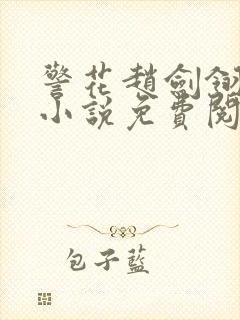 警花趙劍釵
小說免費閱
包子藍